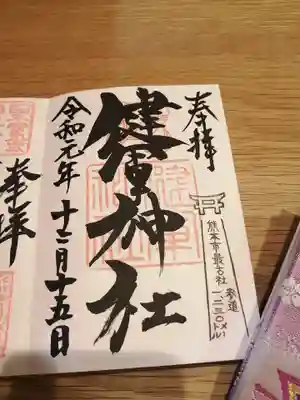 奉拝
熊本市最古社
参道
一二三〇メートル
健軍神社
令和元年十二月十五日
奉拝